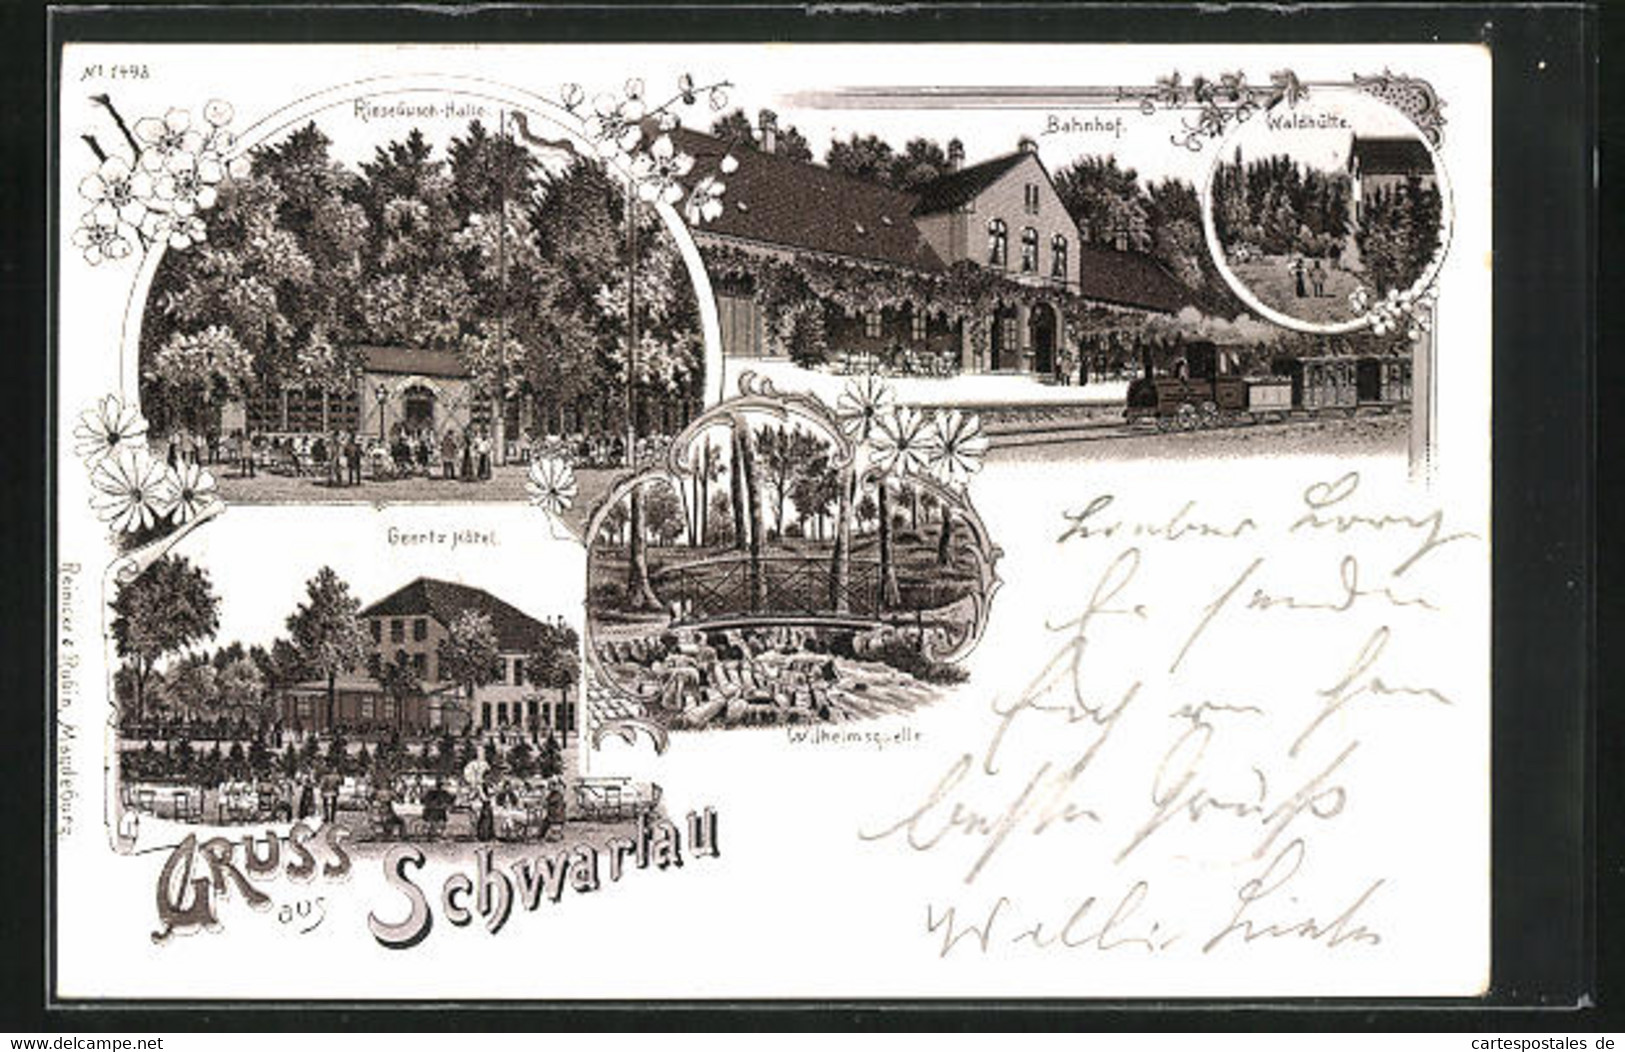 No 1498
Riesebusch-Halle.
Bahnhof.
Waldhütte.
Geertz Hôtel.
Wilhelmsquelle
Reinicke & Rubin, Magdeburg.
GRUSS
aus Schwartau
Lieber
senden
besten Gruß
Willi
www.delcampe.net
cartespostales de